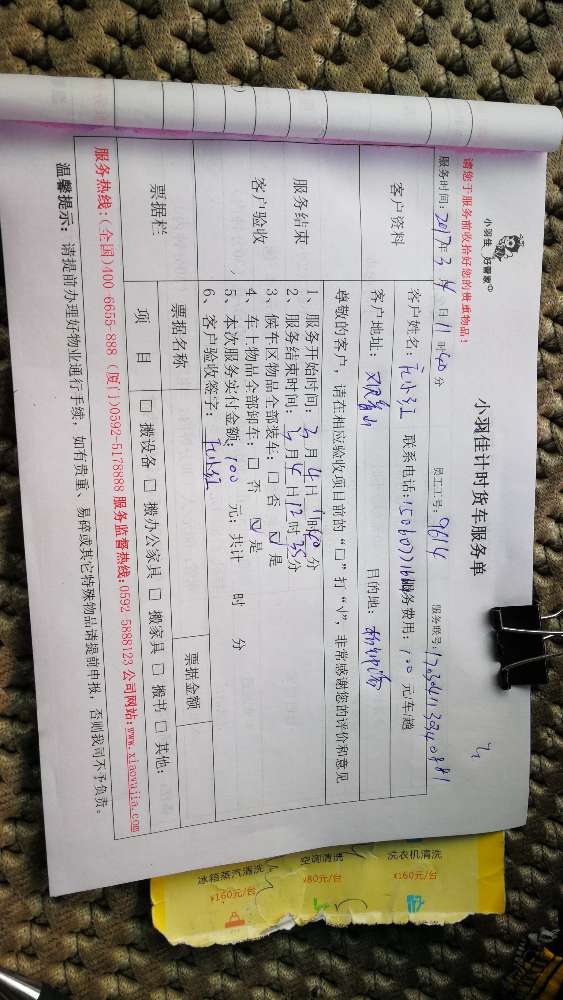 小羽佳 好管家
小羽佳计时货车服务单
请您于服务前收拾好您的贵重物品!
服务时间: 2017年 3 月 4 日 11 时 40 分 员工工号: 9614 服务账号:
客户资料
客户姓名: 联系电话: 服务费用: 100 元/车/趟
客户地址: 目的地:
尊敬的客户, 请在相应验收项目前的“□”打“√”, 非常感谢您的评价和意见
服务结束
客户验收
1、服务开始时间: 3 月 4 日 11 时 40 分
2、服务结束时间: 3 月 4 日 12 时 35 分
3、候车区物品全部装车: □ 否 ☑ 是
4、车上物品全部卸车: □ 否 ☑ 是
5、本次服务实付金额: 100 元; 共计 时 分
6、客户验收签字:
票据栏
票据名称 票据金额
项 目 □ 搬设备 □ 搬办公家具 □ 搬家具 □ 搬书 □ 其他:
服务热线:(全国)400-6655-888 (厦门)0592-5178888 服务监督热线:0592-5888123 公司网站:www.xiaoyujia.com
温馨提示: 请提前办理好物业通行手续, 如有贵重、易碎或其它特殊物品请提前申报, 否则我司不予负责。
洗衣机清洗
¥160元/台
空调清洗
¥80元/台
冰箱蒸汽清洗
¥160元/台